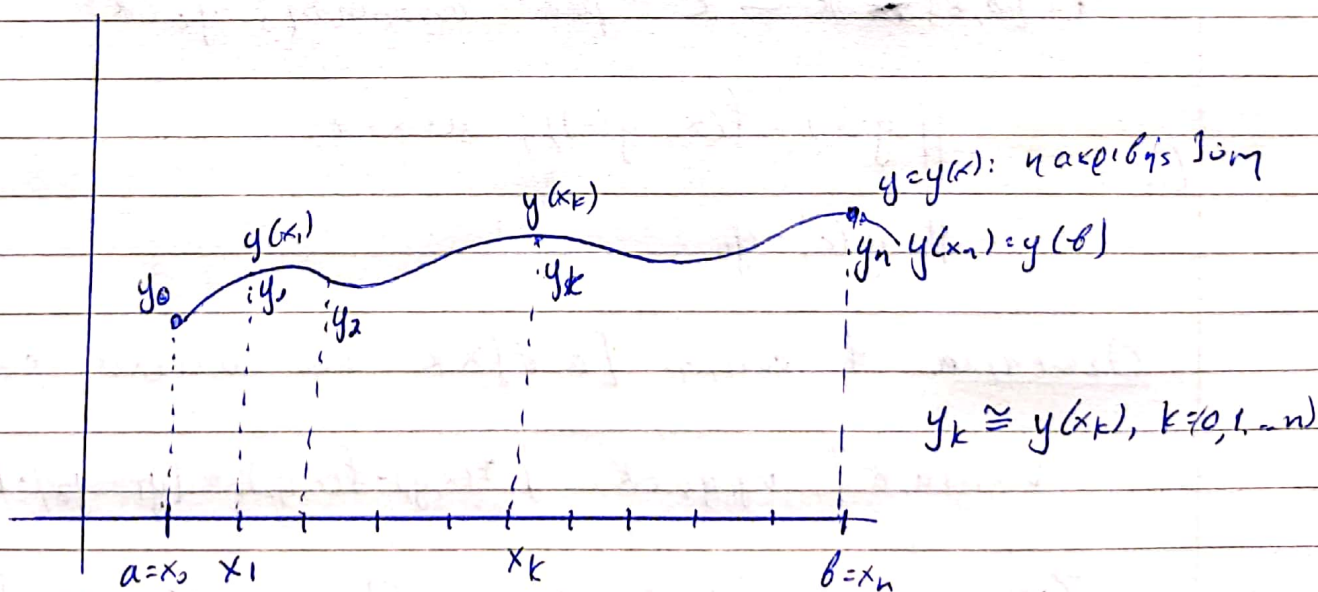 y=y(x): η ακριβής λύση
y(x_k)
y(x_1)
y_n y(x_n)=y(β)
y_0 y_1 y_k
y_2
y_k ≅ y(x_k), k=0,1,..n)
a=x_0 x_1 x_k β=x_n